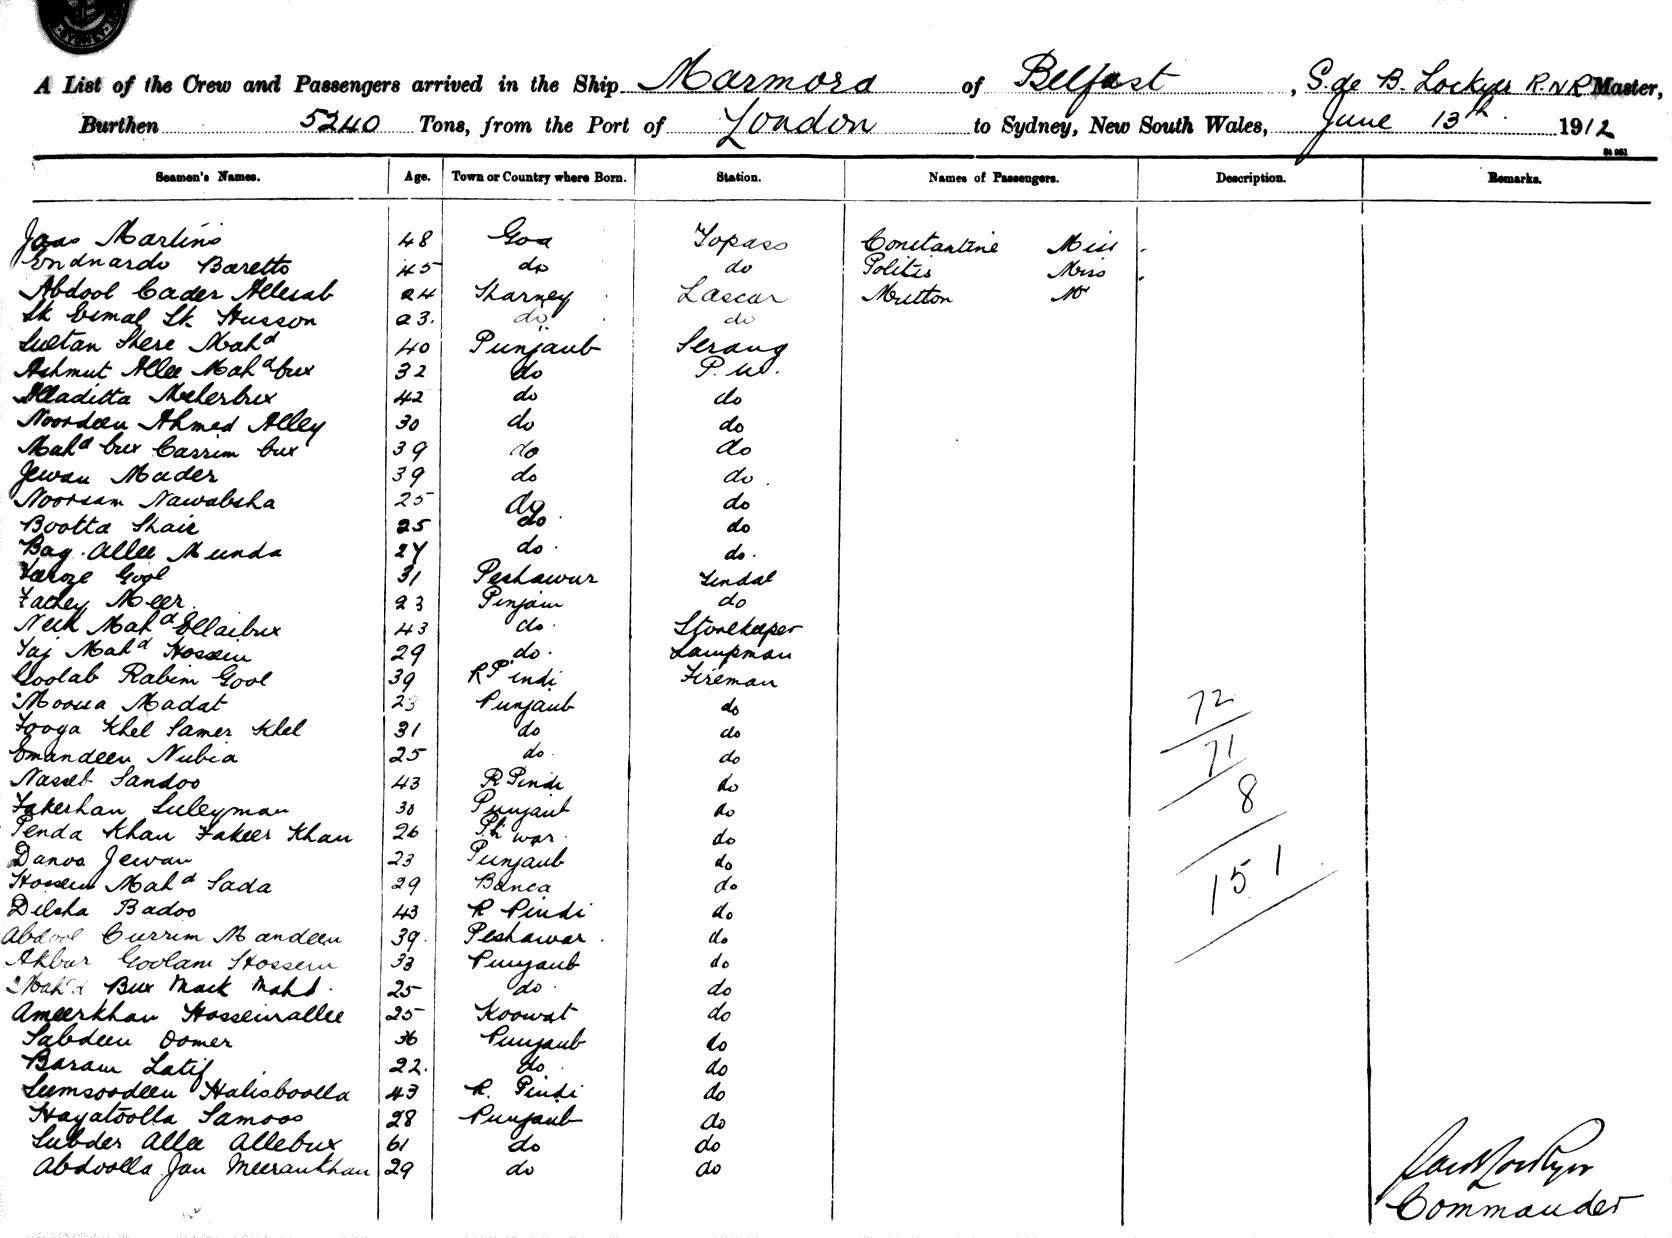 SYDNEY
A List of the Crew and Passengers arrived in the Ship Marmora of Belfast, S. de B. Lockyer R.N.R Master,
Burthen 5240 Tons, from the Port of London to Sydney, New South Wales, June 13th 1912
Seamen's Names. Age. Town or Country where Born. Station. Names of Passengers. Description. Remarks.
Joao Martins 48 Goa Topass Constantine Miss
Baretto 45 do do Politis Miss
Abdool Cader Allesab 24 Tharney Lascar Mutton Mr
Sk Esmal Sk Husson 23. do do
Sultan Shere Mahd 40 Punjaub Serang
Ashmut Allee Mahd bux 32 do P.W.
Alladitta Meherbux 42 do do
Noordeen Ahmed Alley 30 do do
Mahd bux Carrim bux 39 do do
Jewan Mader 39 do do.
Noorsam Nawabsha 25 do do
Bootta Shair 25 do. do
Bag. Allee Munda 27 do. do.
Feroze Gool 31 Peshawur Tindal
Fattey Meer. 23 Punjaub do
Neek Mahd Ellaibux 43 do. Storekeeper
Taj Mahd Hossein 29 do. Lampman
Goolab Rahim Gool 39 R P'indi Fireman
Moosa Madat 23 Punjaub do
Tooga Khel Samer Khel 31 do do
Emandeen Nubia 25 do. do
Nasseb Sandoo 43 R Pindi do
Fakerhan Suleyman 30 Punjaub do
Penda Khan Fakeer Khan 26 Ph'war. do
Danoo Jewan 23 Punjaub do
Hossein Mahd Sada 29 Banca do
Dilsha Badoo 43 R Pindi do
Abdool Currim Mandeen 39. Peshawar. do
Akbar Goolam Hossein 33 Punjaub do
Mahd Bux Mack Mahd. 25 do do
Ameerkhan Hosseinallee 25 Koowat do
Sabdeen Oomer 36 Punjaub do
Baram Latif 22. do. do
Sumsoordeen Halisboolla 43 R. Pindi do
Hayatoolla Samoos 28 Punjaub do
Subder Allee Allebux 61 do do
Abdoolla Jan Meerankhan 29 do do
72
71
8
151
Lockyer
Commander